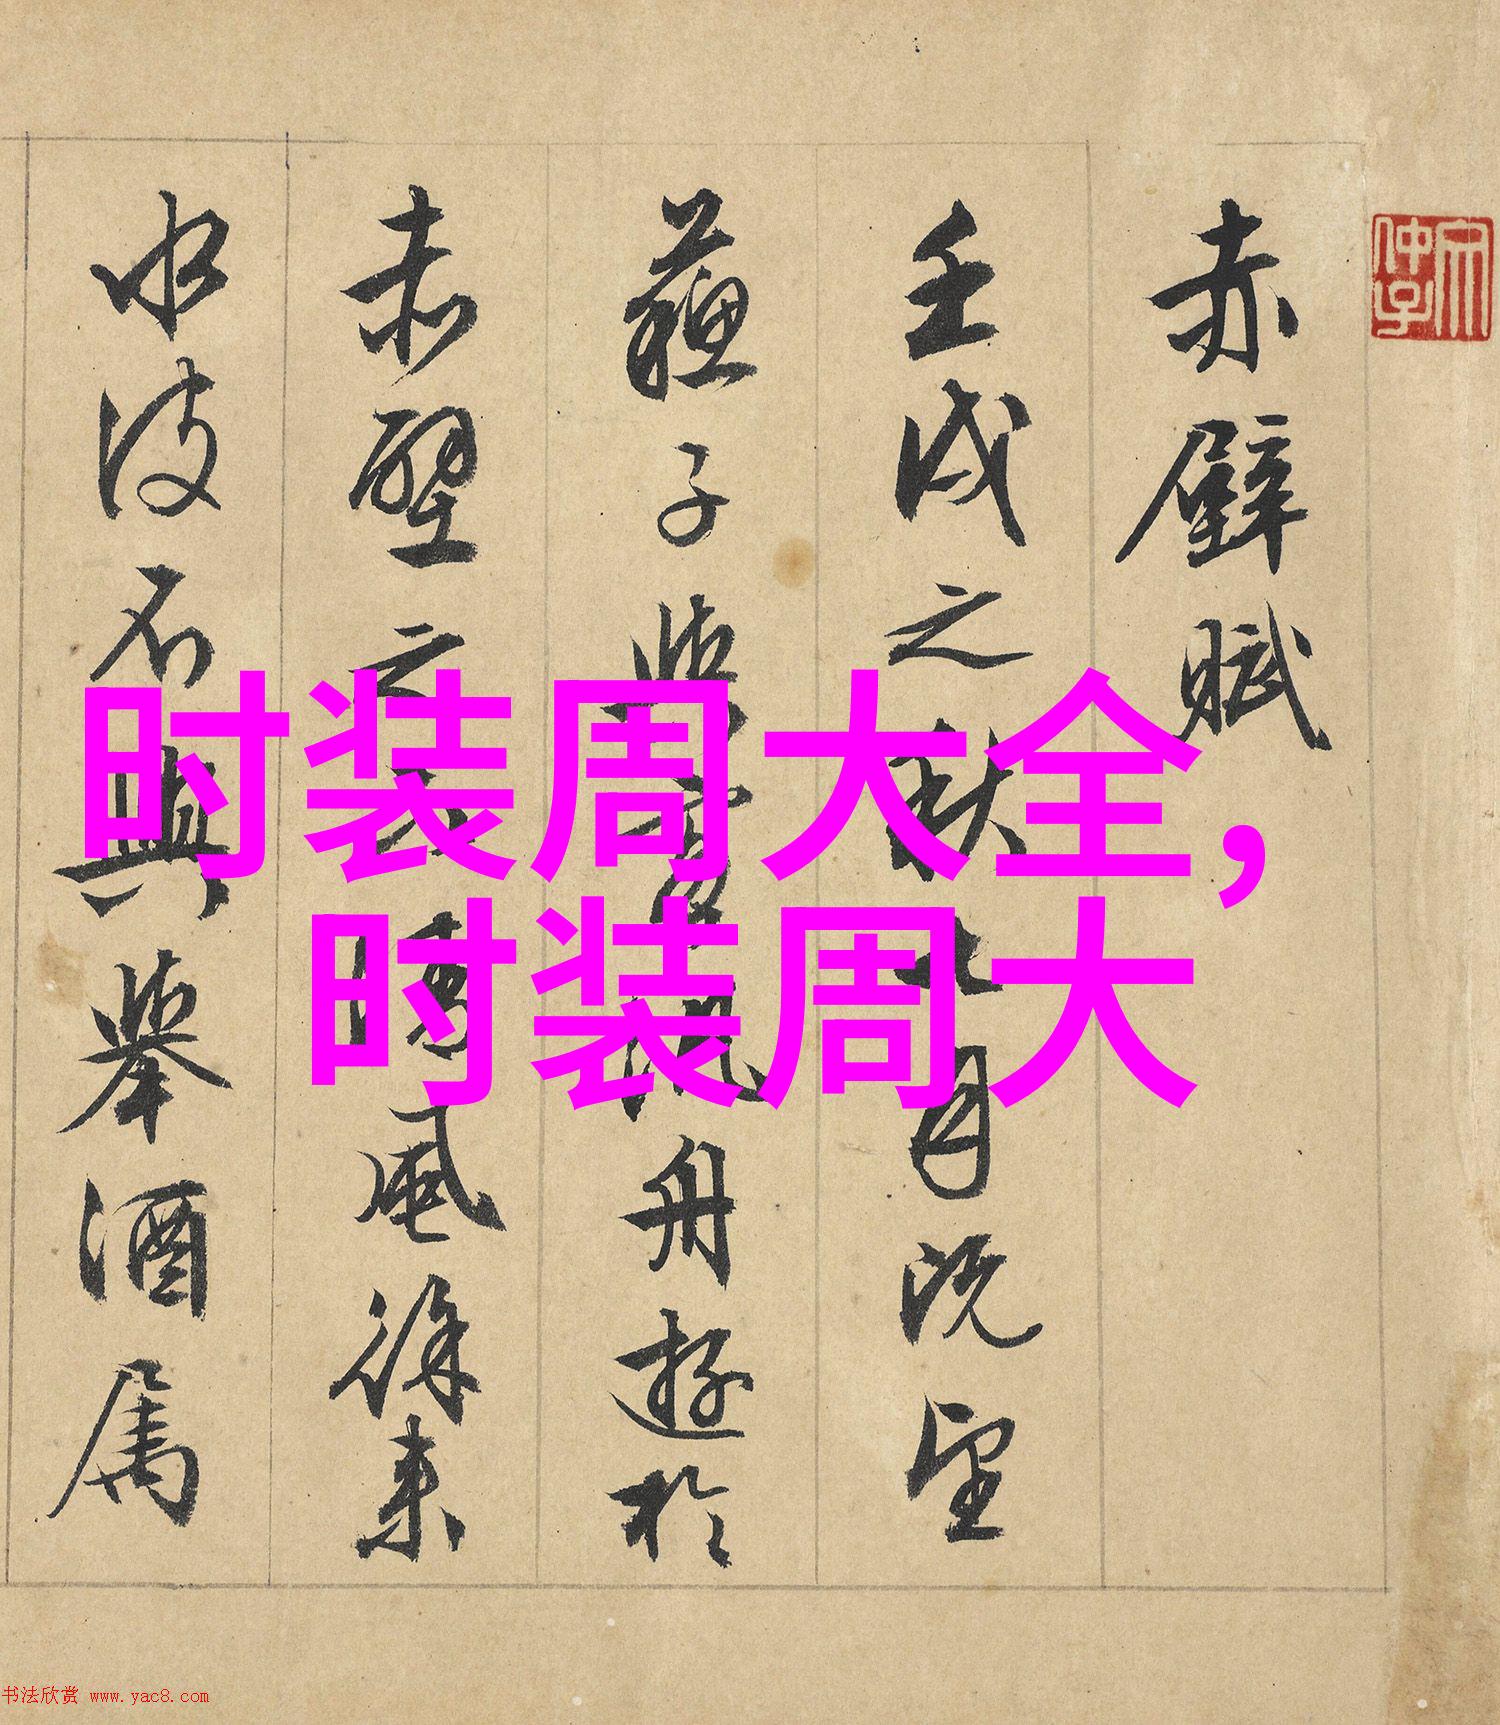 赤壁賦
壬戌之秋七月既望
蘇子與客泛舟遊於
赤壁之下清風徐来
水波不興舉酒属
时装周大全，
时装周大
书法欣赏 www.yac8.com